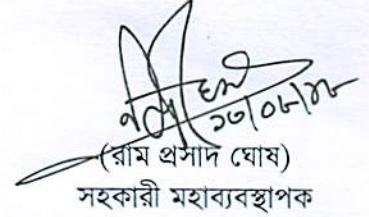 ১৩/০৮/১৮
(রাম প্রসাদ ঘোষ)
সহকারী মহাব্যবস্থাপক